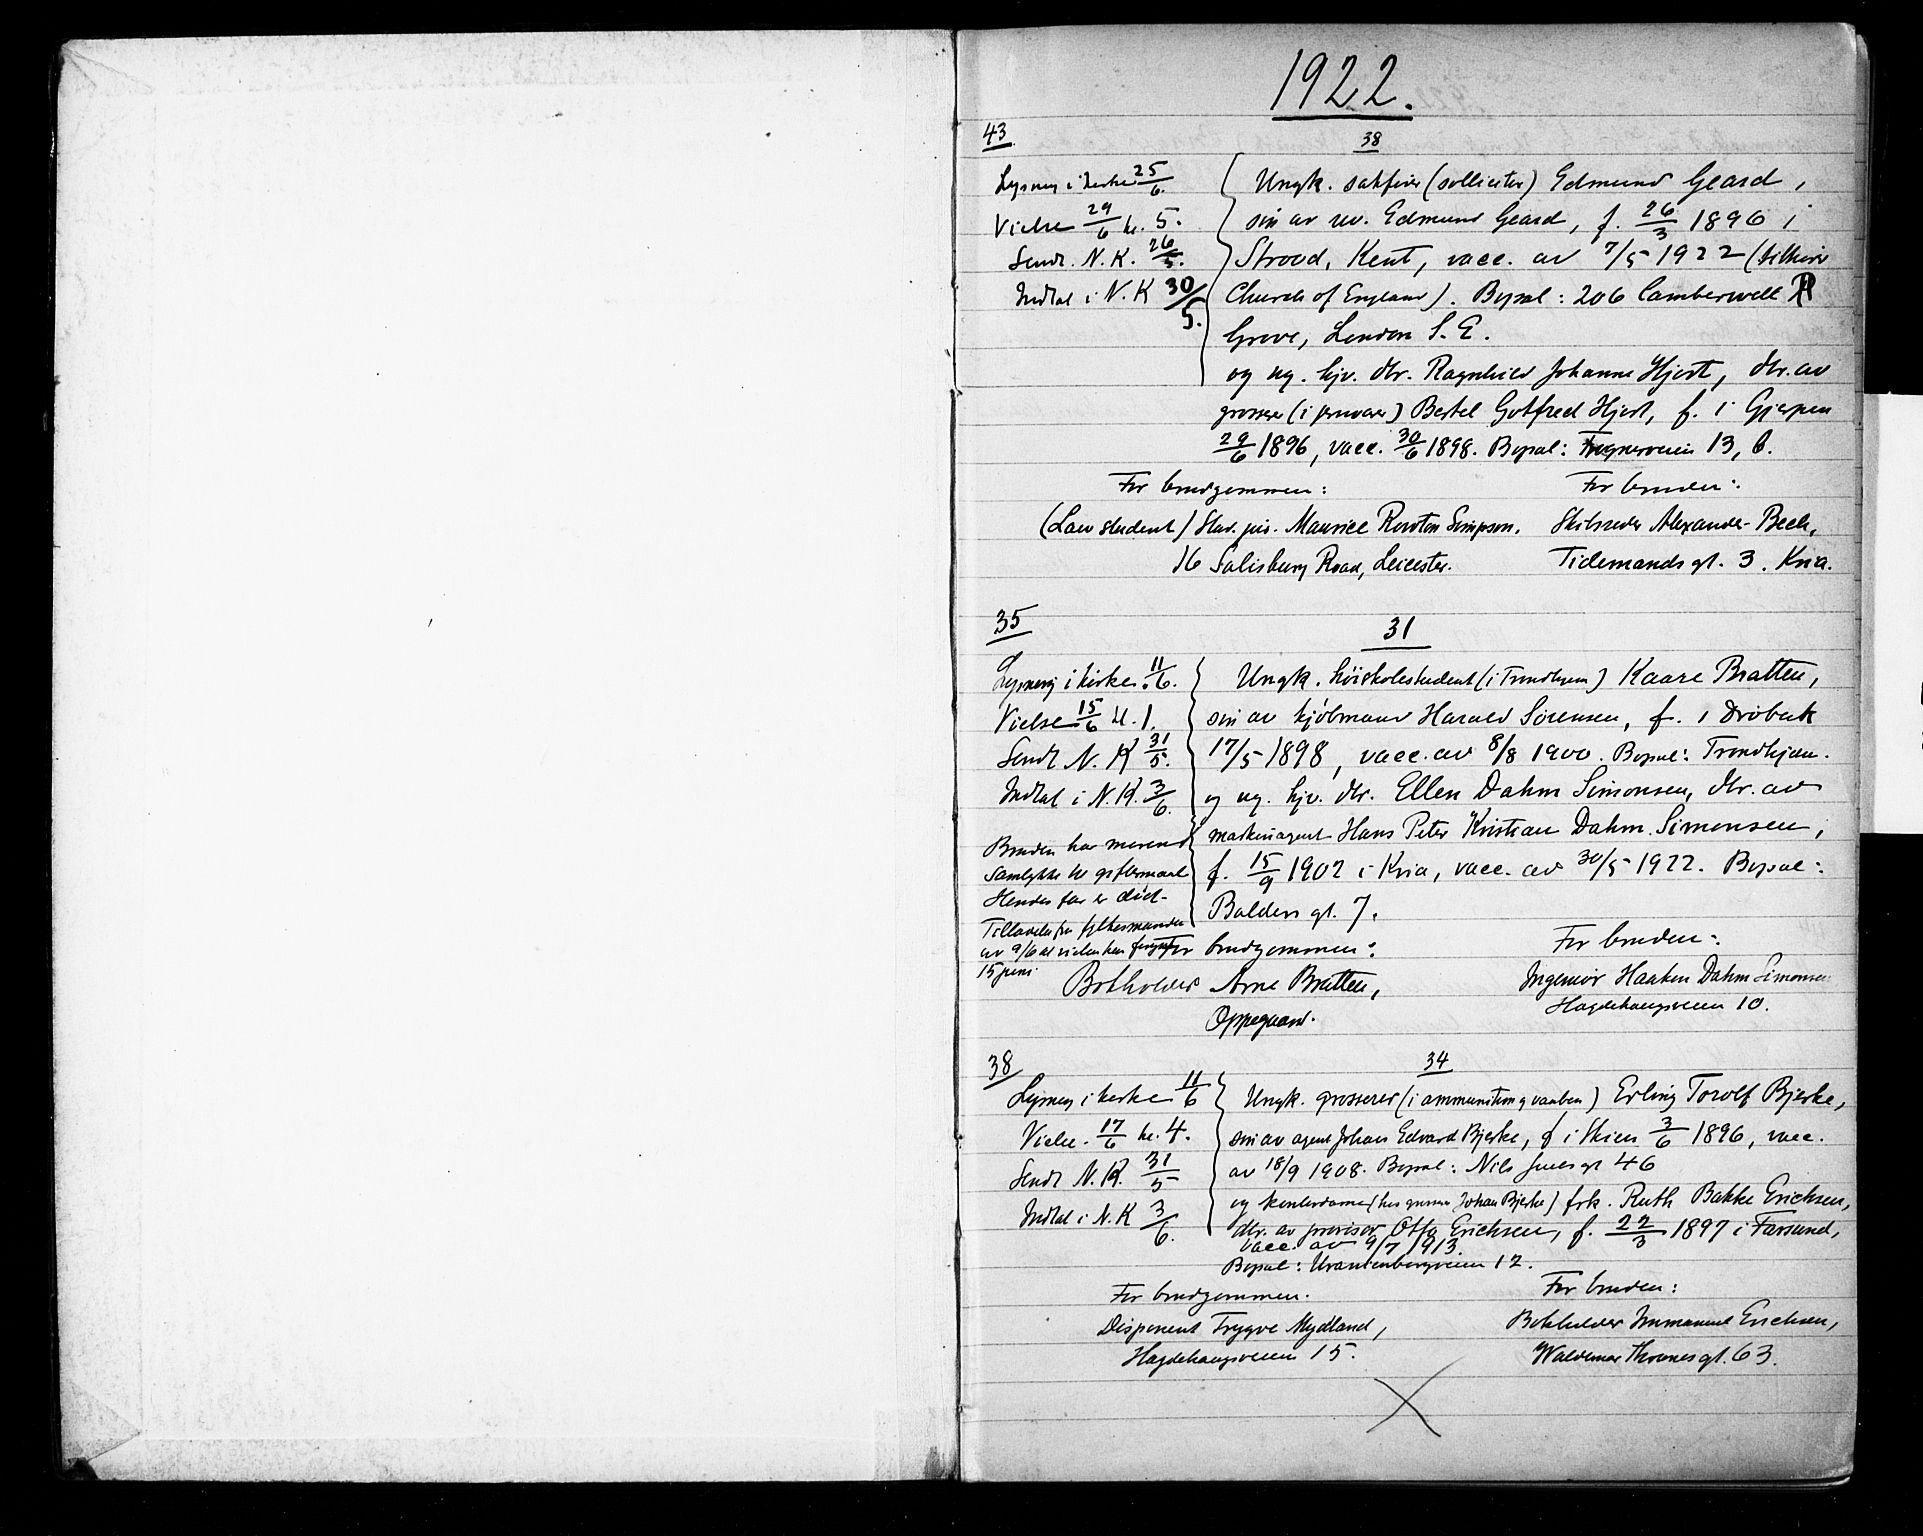 1922.
43
38
Lysning i kirke 25/6.
Vielse 29/6 kl. 5.
Sendt. N. K. 26/5.
Indtat i N. K 30/5.
Ungk. sakfører (solliciter) Edmund Geard,
søn av rev. Edmund Geard, f. 26/3 1896 i
Strood, Kent, vacc. av 7/5 1922 (tilhører
Church of England). Bopæl: 206 Camberwell
Grove, London S. E.
og ug. hjv. dtr. Ragnhild Johanne Hjort, dtr. av
grosserer (i jernvarer) Bertel Gotfred Hjort, f. i Gjerpen
29/6 1896, vacc. 30/6 1898. Bopæl: Frognerveien 13, b.
For brudgommen:
For bruden:
(Law student) Stud. jur. Maurice Rowton Simpson,
Skibsreder Alexander Bech,
16 Salisbury Road, Leicester.
Tidemands gt. 3. Kria.
35
31
Lysning i kirke 11/6.
Vielse 15/6 kl. 1.
Sendt N. K 31/5.
Indtat i N. K. 3/6.
Bruden har morens
samtykke til giftermaal
Hendes far er død.
Tilladelse fra fylkesmanden
av 9/6 at vielsen kan foregaa
15 juni
Ungk. høiskolestudent (i Trondhjem) Kaare Bratten,
søn av kjøbmand Harald Sørensen, f. i Drøbak
17/5 1898, vacc. av 8/8 1900. Bopæl: Trondhjem.
og ug. hjv. dtr. Ellen Dahm Simonsen, dtr. av
maskinagent Hans Peter Kristian Dahm Simonsen,
f. 15/9 1902 i Kria, vacc. av 30/5 1922. Bopæl:
Balders gt. 7.
For brudgommen:
For bruden:
Bokholder Arne Bratten,
Oppegaard.
Ingeniør Haakon Dahm Simonsen
Hagdehaugsveien 10.
38
34
Lysning i kirke 11/6
Vielse. 17/6 kl. 4.
Sendt N. K. 31/5
Indtat i N. K 3/6.
Ungk. grosserer (i ammunition og vaaben) Erling Torolf Bjerke,
søn av agent Johan Edvard Bjerke, f i Skien 3/6 1896, vacc.
av 18/9 1908. Bopæl: Nils Juels gt 46
og kontordame (hos grosserer Johan Bjerke) frk. Ruth Bakke Erichsen,
dtr. av provisor Otto Erichsen, f. 22/3 1897 i Farsund,
vacc. av 9/7 1913.
Bopæl: Uranienborgveien 12.
For brudgommen.
For bruden:
Disponent Trygve Mydland,
Hagdehaugsveien 15.
Bokholder Immanuel Erichsen,
Waldemar Thranes gt. 63.